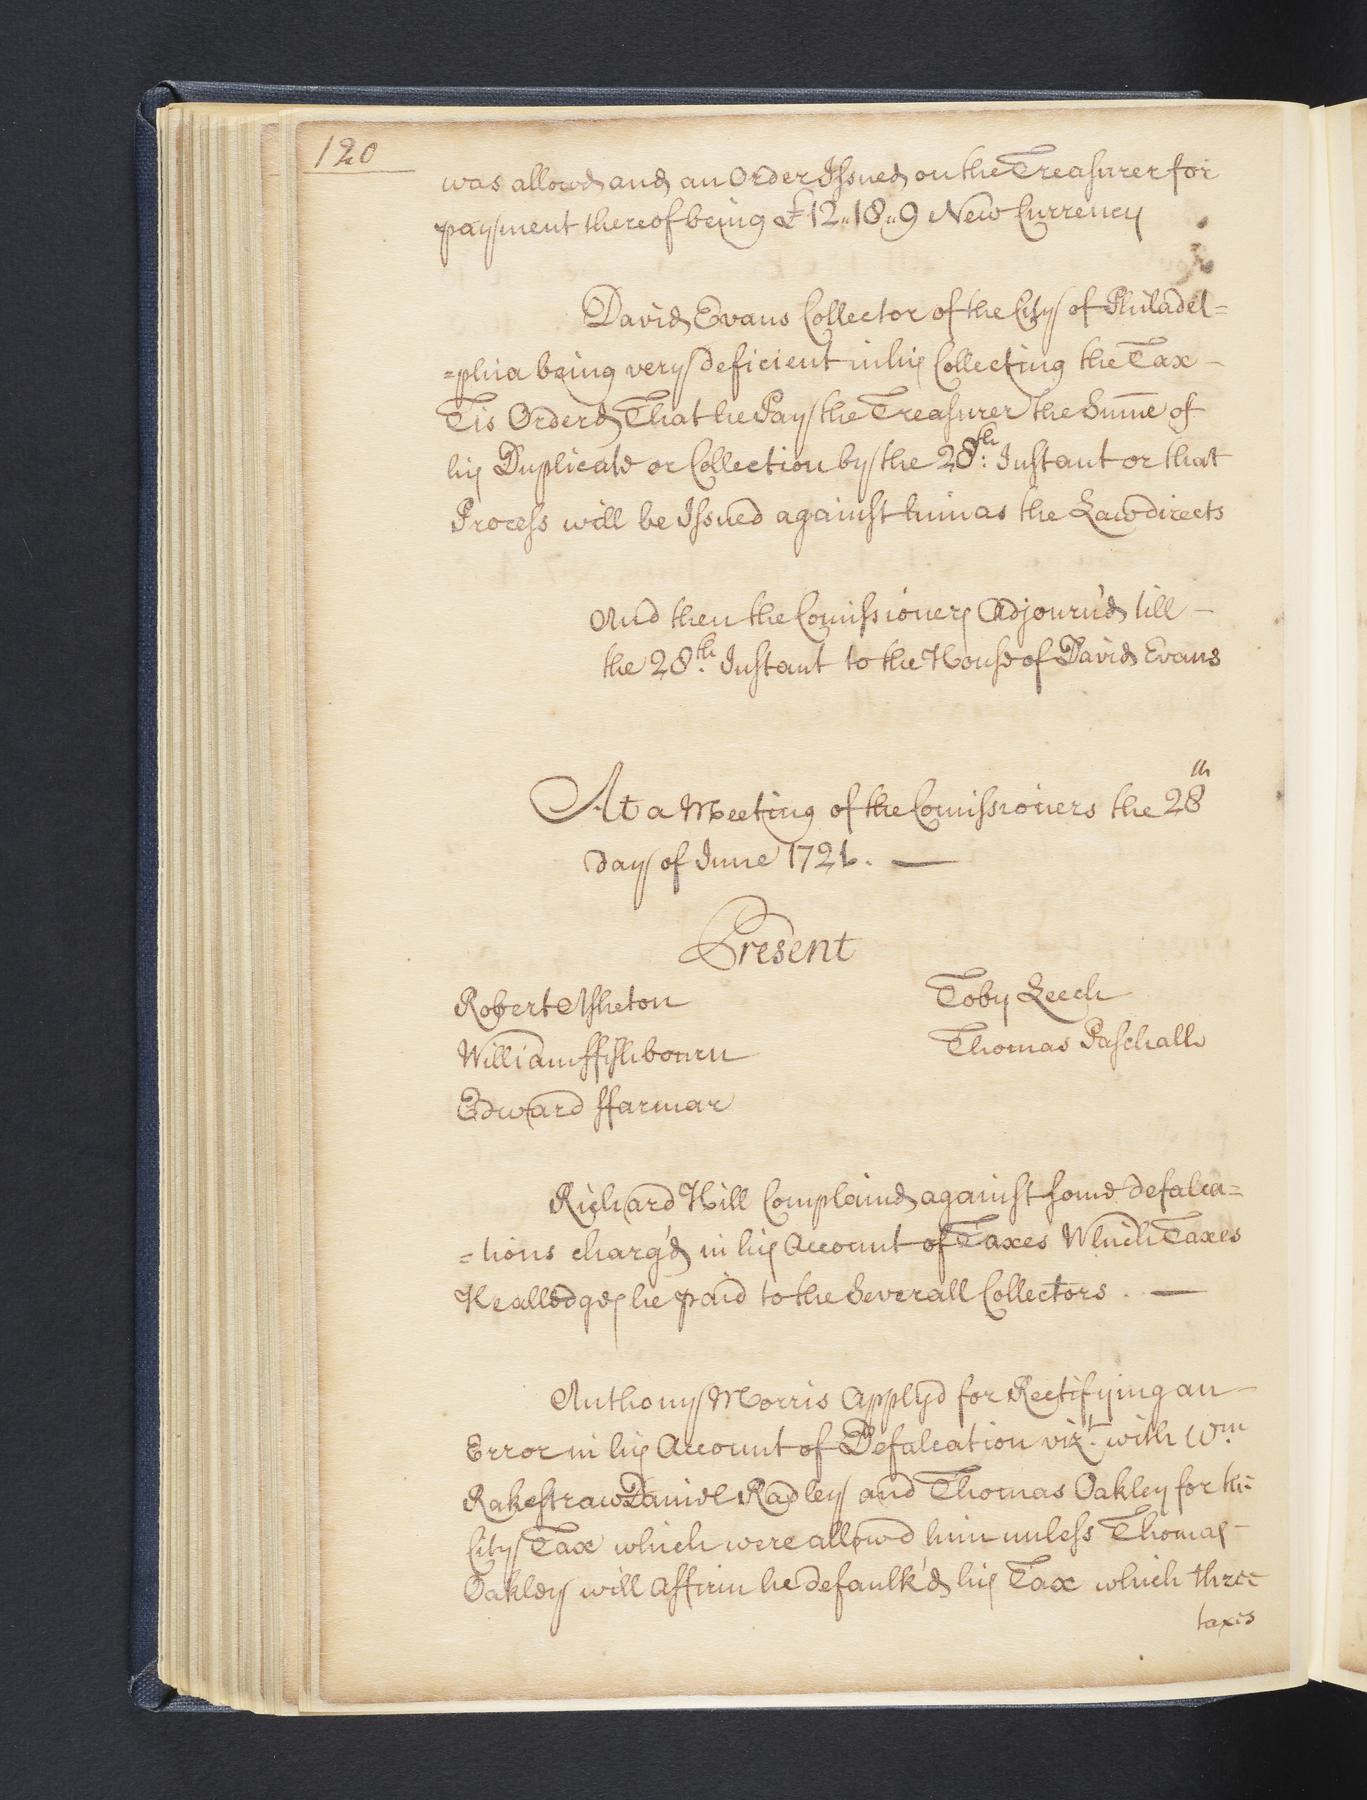 120
was allowd and an Order Issued on the Treasurer for
payment thereof being £12..18..9 New Currency
David Evans Collector of the City of Philadel=
=phia being very deficient in his Collecting the Tax –
Tis Orderd That he Pay the Treasurer the Sum̄e of
his Duplicate or Collection by the 28th: Instant or that
Process will be Issued against him as the Law directs
And then the Com̄issioners Adjourn'd till –
the 28th. Instant to the House of David Evans
At a Meeting of the Com̄issioners the 28th
day of June 1721. —
Present
Robert Assheton
Toby Leech
William ffishbourn
Thomas Paschall
Edward ffarmar
Richard Hill Complaind against some defalca=
=tions charg'd in his Account of Taxes Which Taxes
He alledges he paid to the Severall Collectors . —
Anthony Morris Applyd for Rectifying an –
Error in his Account of Defalcation vizt. with Wm.
Rakestraw Daniel Radley and Thomas Oakley for the
City Tax which were allowd him unless Thomas –
Oakley will Affirm he defaulk'd his Tax which three
taxes